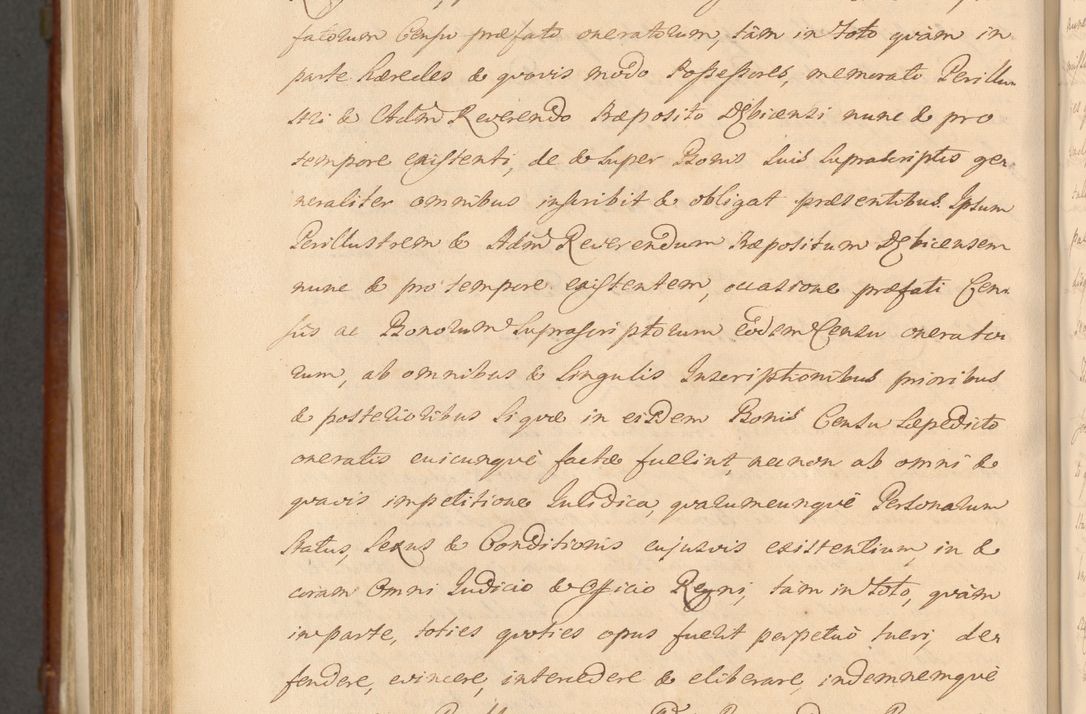 fatorum Censu præfato oneratorum, tàm in toto quàm in
parte hæredes & quovis modo Possessores, memorato Perillu-
stri & Adm̃ Reverendo Præposito Dębicensi nunc & pro
tempore existenti, de & super Bonis suis suprascriptis ge-
neraliter omnibus inscribit & obligat præsentibus. Ipsum
Perillustrem & Adm̃ Reverendum Præpositum Dębicensem
nunc & pro tempore existentem, occasione præfati Cen-
sûs ac Bonorum suprascriptorum eodem Censu onerato-
rum, ab omnibus & singulis Inscriptionibus prioribus
& posterioribus siquæ in eisdem Bonis Censu sæpedicto
oneratis cuicunquè factæ fuerint, necnon ab omni &
quavis impetitione Juridica, quarumcunquè Personarum
Status, Sexus & Conditionis cujusvis existentium, in &
coram Omni Judicio & Officio Regni, tàm in toto, quàm
in parte, toties quoties opus fuerit perpetuò tueri, de-
fendere, evincere, intercedere & eliberare, indemnemquè